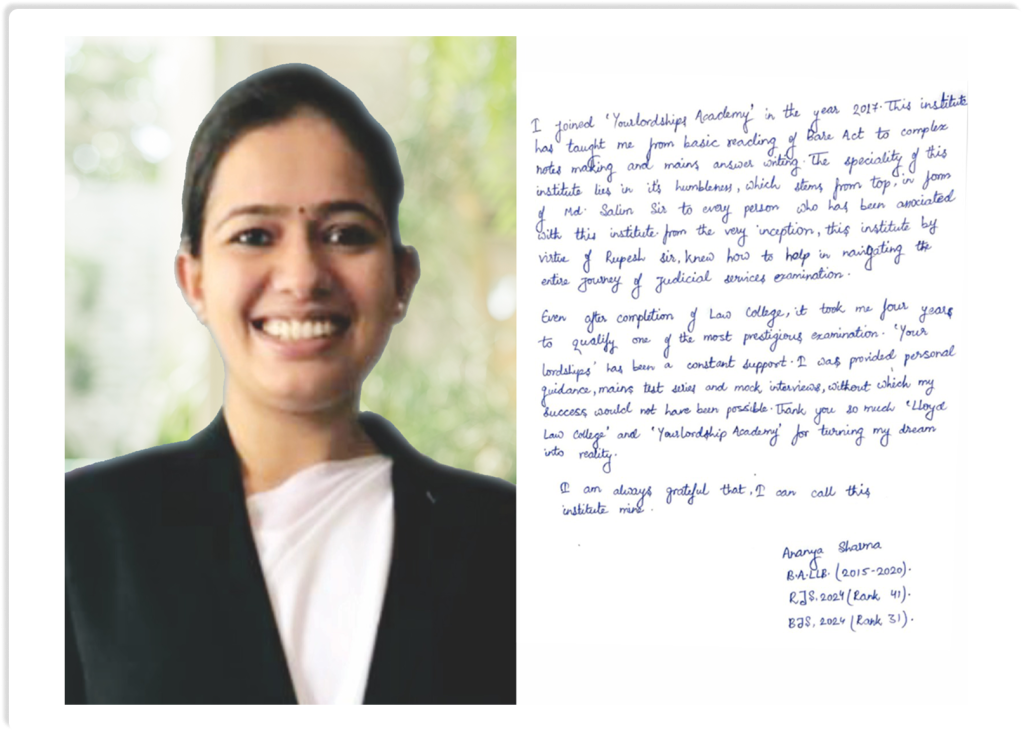 I joined 'Yourlordships Academy' in the year 2017. This institute
has taught me from basic reading of Bare Act to complex
notes making and mains answer writing. The speciality of this
institute lies in it's humbleness, which stems from top, in form
of Md. Salim Sir to every person who has been associated
with this institute from the very inception, this institute by
virtue of Rupesh sir, knew how to help in navigating the
entire journey of judicial services examination.
Even after completion of Law College, it took me four years
to qualify one of the most prestigious examination. 'Your
lordships' has been a constant support. I was provided personal
guidance, mains test series and mock interviews, without which my
success would not have been possible. Thank you so much 'Lloyd
Law College' and 'Yourlordship Academy' for turning my dream
into reality.
I am always grateful that, I can call this
institute mine.
Ananya Sharma
B.A.LLB. (2015-2020).
RJS. 2024 (Rank 41).
BJS, 2024 (Rank 31).